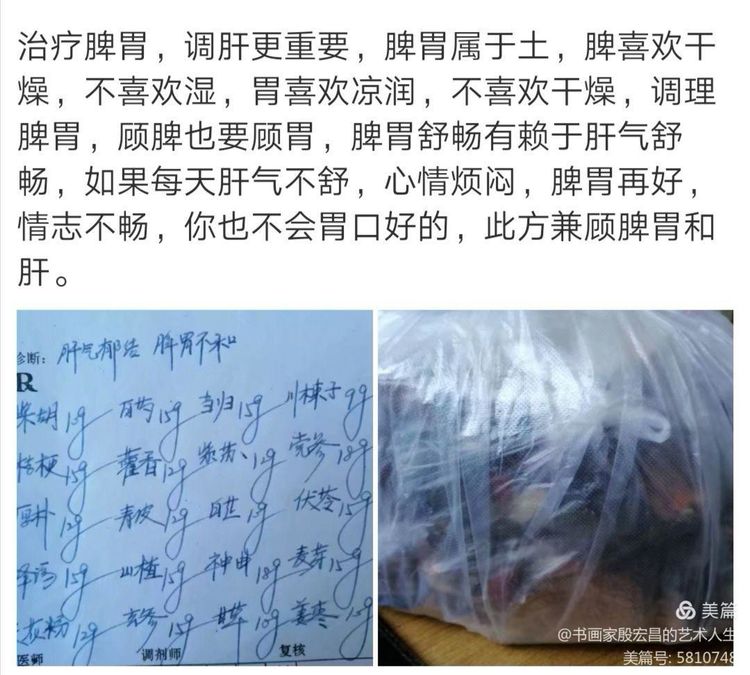 治疗脾胃，调肝更重要，脾胃属于土，脾喜欢干
燥，不喜欢湿，胃喜欢凉润，不喜欢干燥，调理
脾胃，顾脾也要顾胃，脾胃舒畅有赖于肝气舒
畅，如果每天肝气不舒，心情烦闷，脾胃再好，
情志不畅，你也不会胃口好的，此方兼顾脾胃和
肝。
诊断：肝气郁结 脾胃不和
R
柴胡 白芍15g 当归15g 川楝子9g
桔梗15g 藿香12g 紫苏12g 党参18g
12g 青皮12g 伏苓15g
泽泻15g 山楂15g 神曲18g 麦芽15g
花粉12g 玄参15g 甘草10g 姜枣
医师 调剂师 复核
美篇
@书画家殷宏昌的艺术人生
美篇号: 5810748